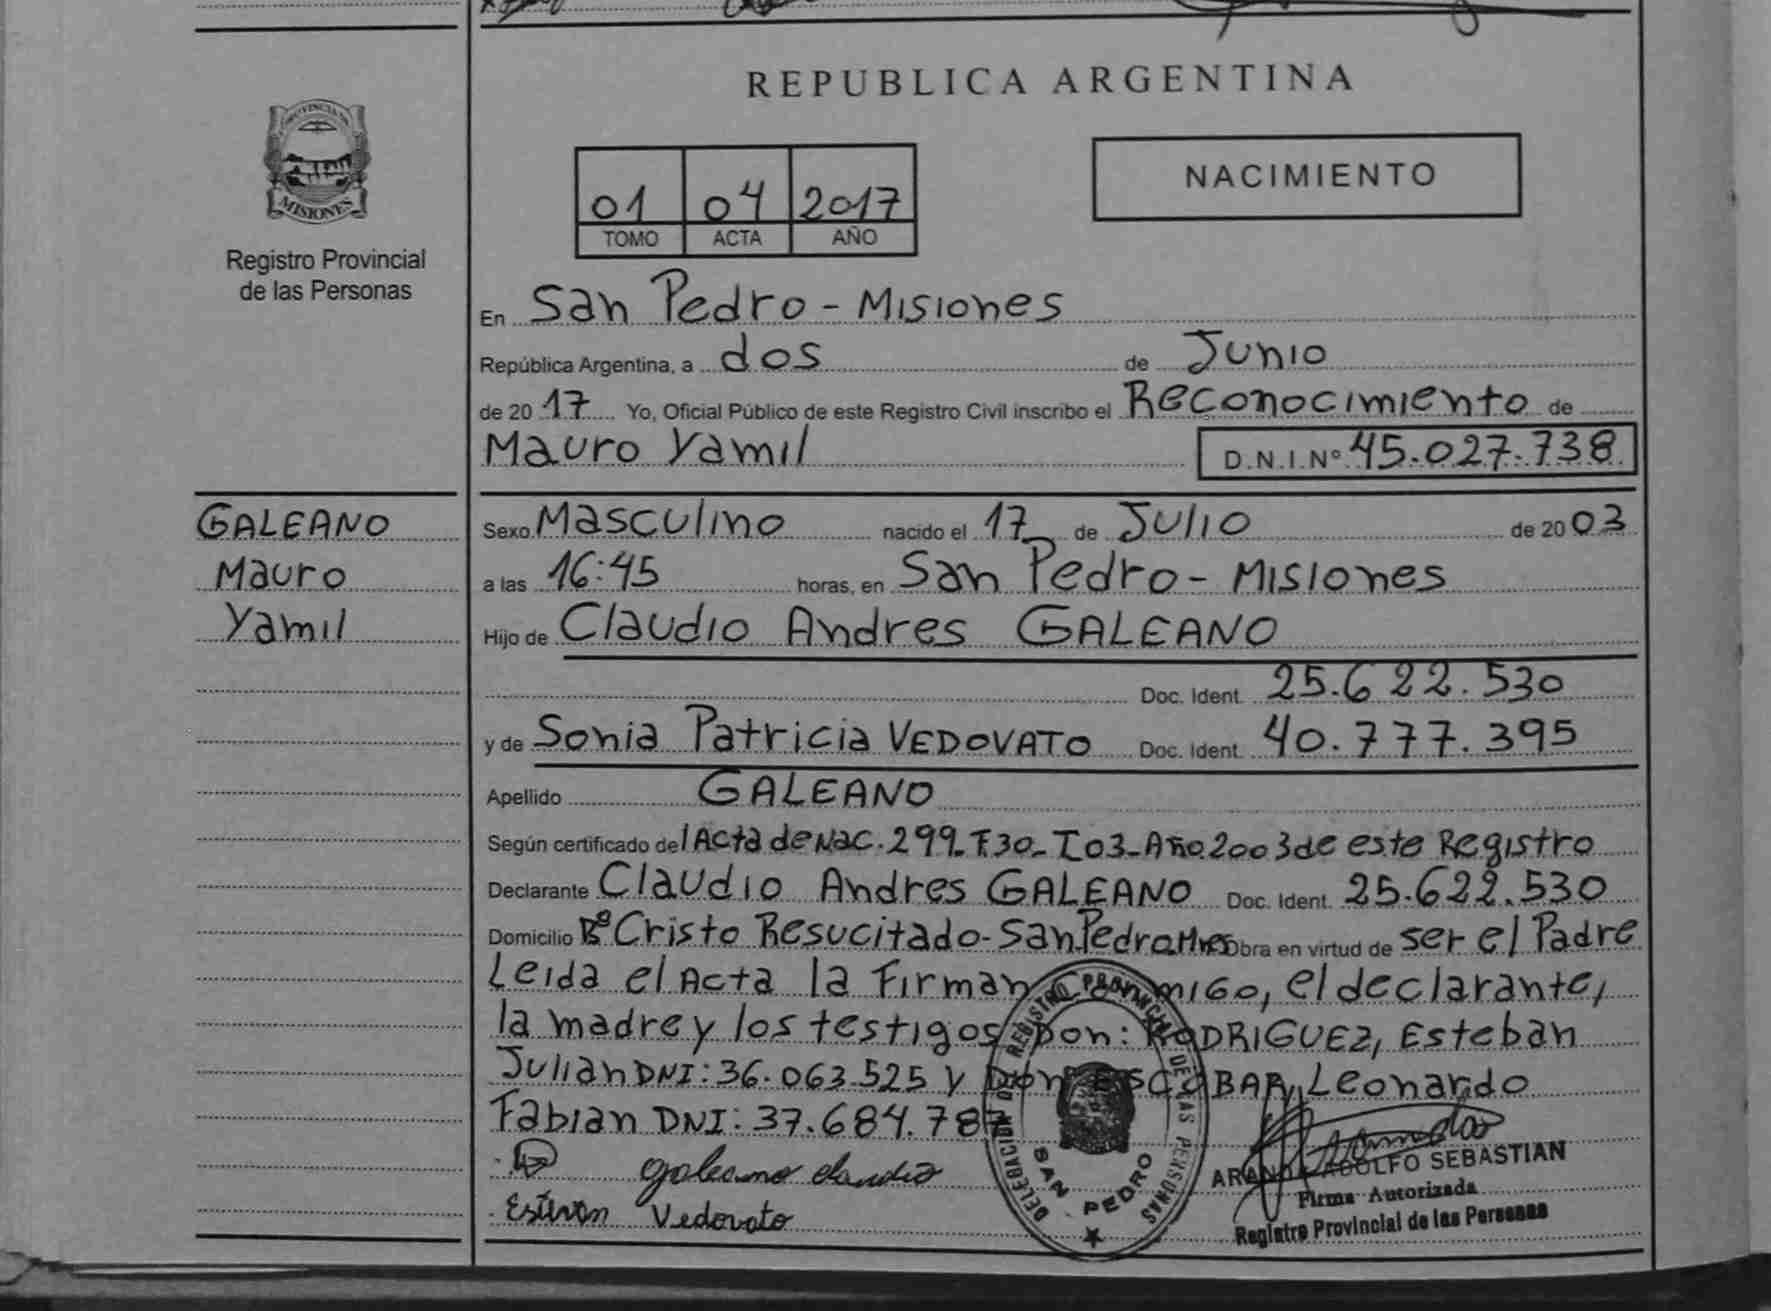 REPUBLICA ARGENTINA
PROVINCIA DE
MISIONES
Registro Provincial
de las Personas
01 04 2017
TOMO ACTA AÑO
NACIMIENTO
En San Pedro - Misiones
República Argentina, a dos de Junio
de 20 17 Yo, Oficial Público de este Registro Civil inscribo el Reconocimiento de
Mauro Yamil D.N.I.Nº 45.027.738
GALEANO
Mauro
Yamil
Sexo Masculino nacido el 17 de Julio de 20 03
a las 16:45 horas, en San Pedro - Misiones
Hijo de Claudio Andres GALEANO
Doc. Ident. 25.622.530
y de Sonia Patricia VEDOVATO Doc. Ident. 40.777.395
Apellido GALEANO
Según certificado del Acta de Nac. 299_F.30_T03_Año.2003 de este Registro
Declarante Claudio Andres GALEANO Doc. Ident. 25.622.530
Domicilio Bº Cristo Resucitado - San Pedro Mnes Obra en virtud de ser el Padre
Leida el Acta la Firman Conmigo, el declarante,
la madre y los testigos Don: RODRIGUEZ, Esteban
Julian DNI: 36.063.525 y Don ESCOBAR, Leonardo
Fabian DNI: 37.684.787
galeano claudio
Vedovato
DELEGACION REGISTRO PROVINCIAL DE LAS PERSONAS
SAN PEDRO
ARANDA ADOLFO SEBASTIAN
Firma Autorizada
Registro Provincial de las Personas